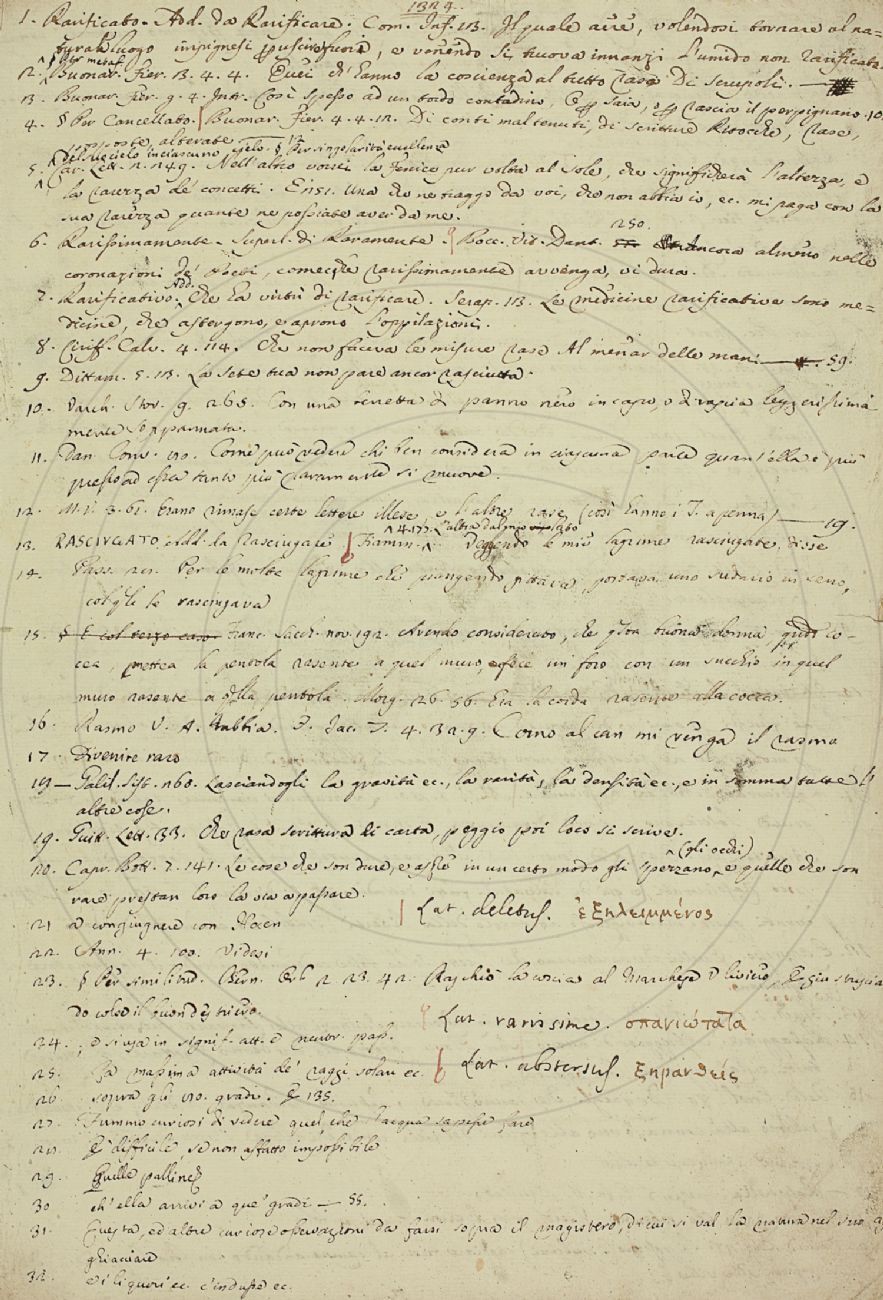 1329.
1. Rarificato. Add. da Rarificare. Com. Inf. 13. Il quale aire, volendosi tornare al na=
tural luogo impignesi puscire fuori, e venendo si truova innanzi l'umido non rarificato.
§ Per metaf.
12. Buonar. Fier. 3. 4. 4. Quei ch'hanno la coscienza al tutto rasa Di scrupoli.
13. Buonar. Fier. 9. 4. Intr. Così spesso ad un tordo contadino, saia, lascia il perpignano. 10.
4. § Per Cancellato. Buonar. Fier. 4. 4. 12. Di conti mal tenuti, di scritture Ritocche, rase,
posposte, alterate
del cielo inciascuno cielo. § Per singolarità eccellenza
5. Car. Lett. n. 149. Nell'altro vorrei la Fenice pur volta al sole, che significherà l'altezza, e
la rarezza de' concetti. E 151. Una che ne traggo da voi, che non abbia io, ec. mi paga con la
sua rarezza quante ne possiate aver da me.
6. Rarissimamente. Superl. di Raramente. Bocc. Vit. Dant. 250. Ancora almeno nelle
coronazioni de' Poeti, comechè rarissimamente avvenga, vi dura.
7. Rarificativo. Add. Che ha virtù di rarificare. Serap. 113. Le medicine rarificative sono me=
dicine, che astergono, e aprono l'oppilazioni.
8. Ciriff. Calv. 4. 114. Che non faceva le misure rase Al menar delle mani 59.
9. Dittam. 5. 13. La sete tua non pare ancor rasciutta.
10. Varch. Stor. 9. 265. Con una berretta di panno nero in capo, o di rascia leggerissima=
mente soppannata.
11. Dan. Conv. 110. Come può vedere chi ben considera in ciascuna parte quant'ella è più
presso ad essa tanto più raramente si muove.
12. M. V. 3. 61. Erano rimase certe lettere illese, e l'altre rase (così hanno i T. a penna) 19.
13. RASCIUGATO. Add. da Rasciugare Fiamm. 4. 177. L'altra dalmio viso, ebbe
Veggendo le mie lagrime rasciugate, disse
14. Pass. 211. Per le molte lagrime che piangendo gittava, portava uno sudario in seno,
col quale le rasciugava
15. Franc. Sacch. nov. 192. Avendo considerato, che questa buona donna, quando co-
cea, mettea la pentola rasente a quel muro, e fece un foro con un succhio in quel
muro rasente a della pentola. Morg. 26. 56. Era la corda rasente alla cocca.
16. Rasmo V. A. Rabbia. F. Jac. T. 4. 32. 9. Como al can mi venga il rasmo
17. Divenire raro
18 — Galil. Sist. 260. Lasciandogli la gravità ec., la rarità, la densità ec., e in somma tutte l'
altre cose.
19. Guitt. Lett. 33. Che rasa scrittura di carta, peggio poi loco si scrive.
20. Capr. Bott. 7. 141. Le cose che son dure, e aspre in un certo modo gli sperzano, (gli occhi) e quelle che son
rare prestan loro la via a passare.
Lat. deletus. ἐξηλειμμένος
21 a congiugnere con
22. Ann. 4. 100. Videsi
23. § Per similitud. Bern. Orl. 2 23. 42. Raschiò la coscia al Marchese Uliviero, E giù striscian
do colse il buon destriero.
Lat. rarissime. σπανιώτατα
24. , e si usa in signif. att. e neutr. pass.
25. La massima attività de' raggi solari ec.
Lat. abstersus. ξηρανθείς
26 sopra gli 110. gradi. E 135.
27. Fummo curiosi di vedere quel, che l'acqua sapesse fare
28 È difficile, se non affatto impossibile
29. Quelle palline
30 ch'ella arrivi a que' gradi — 55.
31. Questa, ed altre curiose osservazioni da farsi sopra il magistero, di cui si val la natura nel suo a
ghiaciare
32. di liquori ec. s'induse ec.